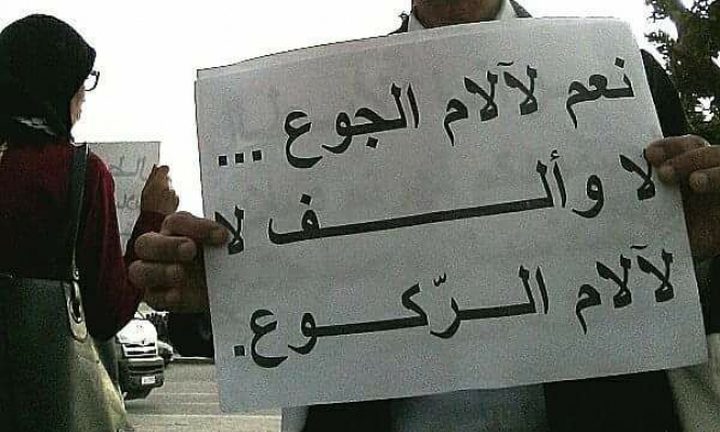 نعم لآلام الجوع ...
لا وألـــــــــف لا
لآلام الـــرّكـــوع.